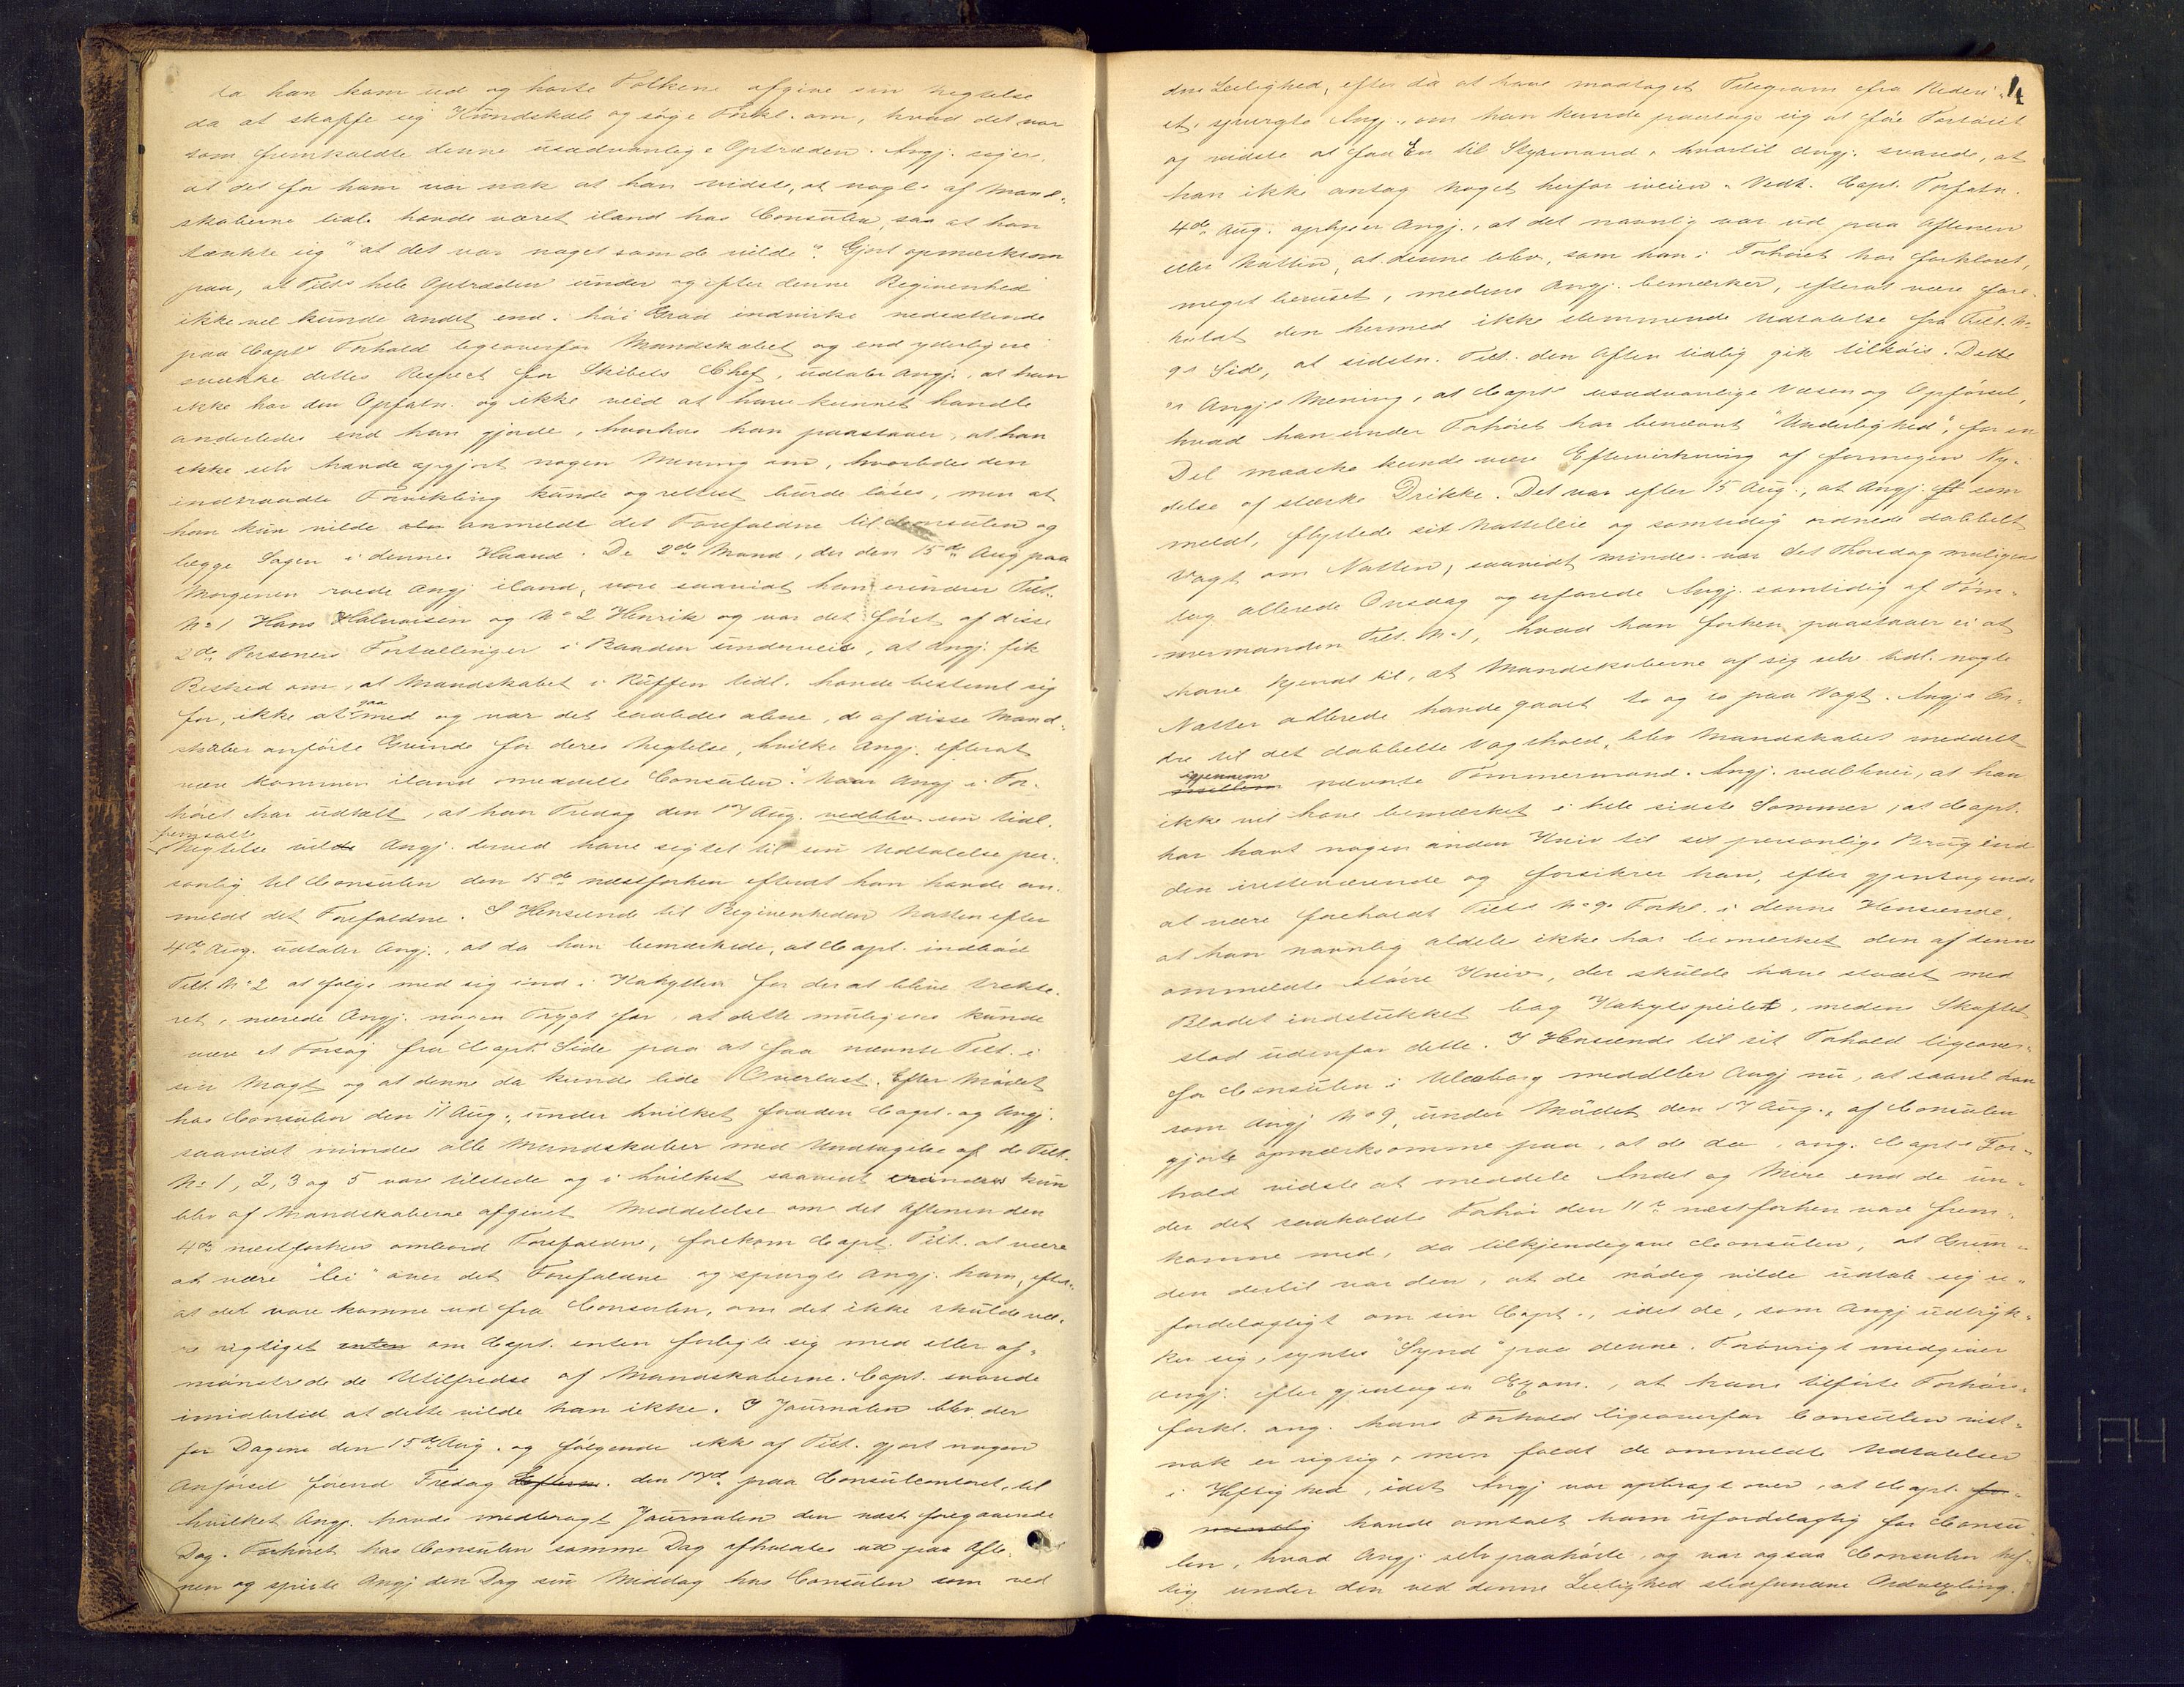 da han kom ud og hørte Folkene afgive sin Negtelse
da at skaffe sig Kundskab og søge Forkl. om, hvad det var
som fremkaldte denne usædvanlige Optræden. Angj. siger,
at det for ham var nok at han vidste, at nogle af Mand-
skaberne tidl. havde været iland hos Consulen, saa at han
tænkte sig "at det var noget som de vilde". Gjort opmærksom
paa, at Tilt.s hele Optræden under og efter denne Begivenhed
ikke vel kunde andet end i høi Grad indvirke nedsættende
paa Capt.s Forhold ligeoverfor Mandskabet og end yderligere
svække dettes Respect for Skibets Chef, udtaler Angj., at han
ikke har den Opfatn. og ikke veed at have kunnet handle
anderledes end han gjorde, hvorhos han paastaaer, at han
ikke selv havde opgjort nogen Mening om, hvorledes den
indtraadte Forvikling kunde og rettest burde løses, men at
han kun vilde anmelde det Forefaldne til Consulen og
lægge Sagen i dennes Haand. De 2de Mand, der den 15de Aug paa
Morgenen roede Angj iland, vare saavidt han erindrer Tilt.
No 1 Hans Halvorsen og No 2 Henrik og var det først af disse
2de Personers Fortællinger i Baaden underveis, at Angj. fik
Besked om, at Mandskabet i Ruffen tidl. havde bestemt sig
for, ikke at gaa med og var det saaledes alene, de af disse Mand-
skaber anførte Grunde for deres Negtelse, hvilke Angj. efterat
være kommen iland meddelte Consulen. Naar Angj i For-
høret har udtalt, at han Fredag den 17 Aug. vedblev sin tidl.
fremsatte
Negtelse vilde Angj. derved have sigtet til sin Udtalelse per-
sonlig til Consulen den 15de næstforhen efterat han havde an-
meldt det Forefaldne. I Henseende til Begivenheden Natten efter
4de Aug. udtaler Angj., at da han bemærkede, at Capt. indbød
Tilt. No 2 at følge med sig ind i Kahytten for der at blive trakte-
ret, nærede Angj. nogen Frygt for, at dette muligens kunde
være et Forsøg fra Capt.s Side paa at faa nævnte Tilt. i
sin Magt og at denne da kunde lide Overlast. Efter Mødet
hos Consulen den 11 Aug., under hvilket foruden Capt. og Angj.
saavidt mindes alle Mandskaber med Undtagelse af de Tilt.
No 1, 2, 3 og 5 vare tilstede og i hvilket saavidt erindres kun
blev af Mandskaberne afgivet Meddelelse om det Aftenen den
4de næstforhen ombord Forefaldne, forekom Capt. Tilt. at være
at være "lei" over det Forefaldne og spurgte Angj. ham, efter-
at det vare komne ud fra Consulen, om det ikke skulde væ-
re rigtigst enten om Capt. enten forligte sig med eller af-
mønstrede de Utilfredse af Mandskaberne. Capt. svarede
imidlertid at dette vilde han ikke. I Journalen blev der
for Dagene den 15de Aug. og følgende ikke af Tilt. gjort nogen
Anførsel førend Fredag den 17de paa Consulcontoret, til
hvilket Angj. havde medbragt Journalen den næst foregaaende
Dag. Forhøret hos Consulen samme Dag afholdtes ud paa Afte-
nen og spiste Angj den Dag sin Middag hos Consulen som ved
4
den Leilighed, efter da at have modtaget Telegram fra Rederi-
et, spurgte Angj., om han kunde paatage sig at føre Fartøiet
og vidste at faa En til Styrmand, hvortil Angj. svarede, at
han ikke antog noget herfor iveien. Vedk. Capt. Forfatn.
4de Aug. oplyser Angj., at det navnlig var ud paa Aftenen
eller Natten, at denne blev, som han i Forhøret har forklaret,
meget beruset, medens Angj. bemærker, efterat være fore-
holdt den hermed ikke stemmende Udtalelse fra Tilt. No
9s Side, at sidstn. Tilt. den Aften tidlig gik tilkøis. Dette
er Angj.s Mening, at Capt.s usædvanlige Væsen og Opførsel,
hvad han under Forhøret har benævnt "Underlighed", for en
Del maaske kunde være Eftervirkning af formegen Ny-
delse af stærke Drikke. Det var efter 15 Aug., at Angj. som
meldt, flyttede sit Natteleie og samtidig ordnede dobbelt
Vagt om Natten, saavidt mindes var det Thorsdag muligens
tog allerede Onsdag og erfarede Angj. samtidig af Tøm-
mermanden Tilt. No 1, hvad han forhen paastaaer ei at
have kjendt til, at Mandskaberne af sig selv tidl. nogle
Nætter allerede havde gaaet to og to paa Vagt. Angj.s Or-
dre til det dobbelte Vagthold, blev Mandskabet meddelt
igjennem
mellem nævnte Tømmermand. Angj. vedbliver, at han
ikke vil have bemærket i hele sidste Sommer, at Capt.
har havt nogen anden Kniv til sit personlige Brug end
den iretteværende og forsikrer han, efter gjentagende
at være foreholdt Tilt No 9s Forkl. i denne Henseende,
at han navnlig aldeles ikke har bemærket den af denne
ommeldte større Kniv, der skulde have staaet med
Bladet indstukket bag Kahytspeilet, medens Skaftet
stod udenfor dette. I Henseende til sit Forhold ligeover-
for Consulen i Uleaborg meddeler Angj nu, at saavel han
som Angj No 9, under Mødet den 17 Aug., af Consulen
gjorte opmærksomme paa, at de da, ang. Capt.s For-
hold vidste at meddele Andet og Mere end de un-
der det saakaldte Forhør den 11te næstforhen vare frem-
komne med, da tilkjendegave Consulen, at Grun-
den dertil var den, at de nødig vilde udtale sig u-
fordelagtigt om sin Capt., idet de, som Angj udtryk-
ker sig, syntes "Synd" paa denne. Forøvrigt medgiver
Angj. efter gjentagen Exam., at hans tilførte Forhørs-
forkl. ang. hans Forhold ligeoverfor Consulen vist-
nok er rigtig, men faldt de ommeldte Udtalelser
i Heftighed, idet Angj var opbragt over, at Capt. for-
mentlig havde omtalt ham ufordelagtig for Consu-
len, hvad Angj selv paahørte, og var ogsaa Consulen hef-
tig under den ved denne Leilighed stedfundne Ordvexling.